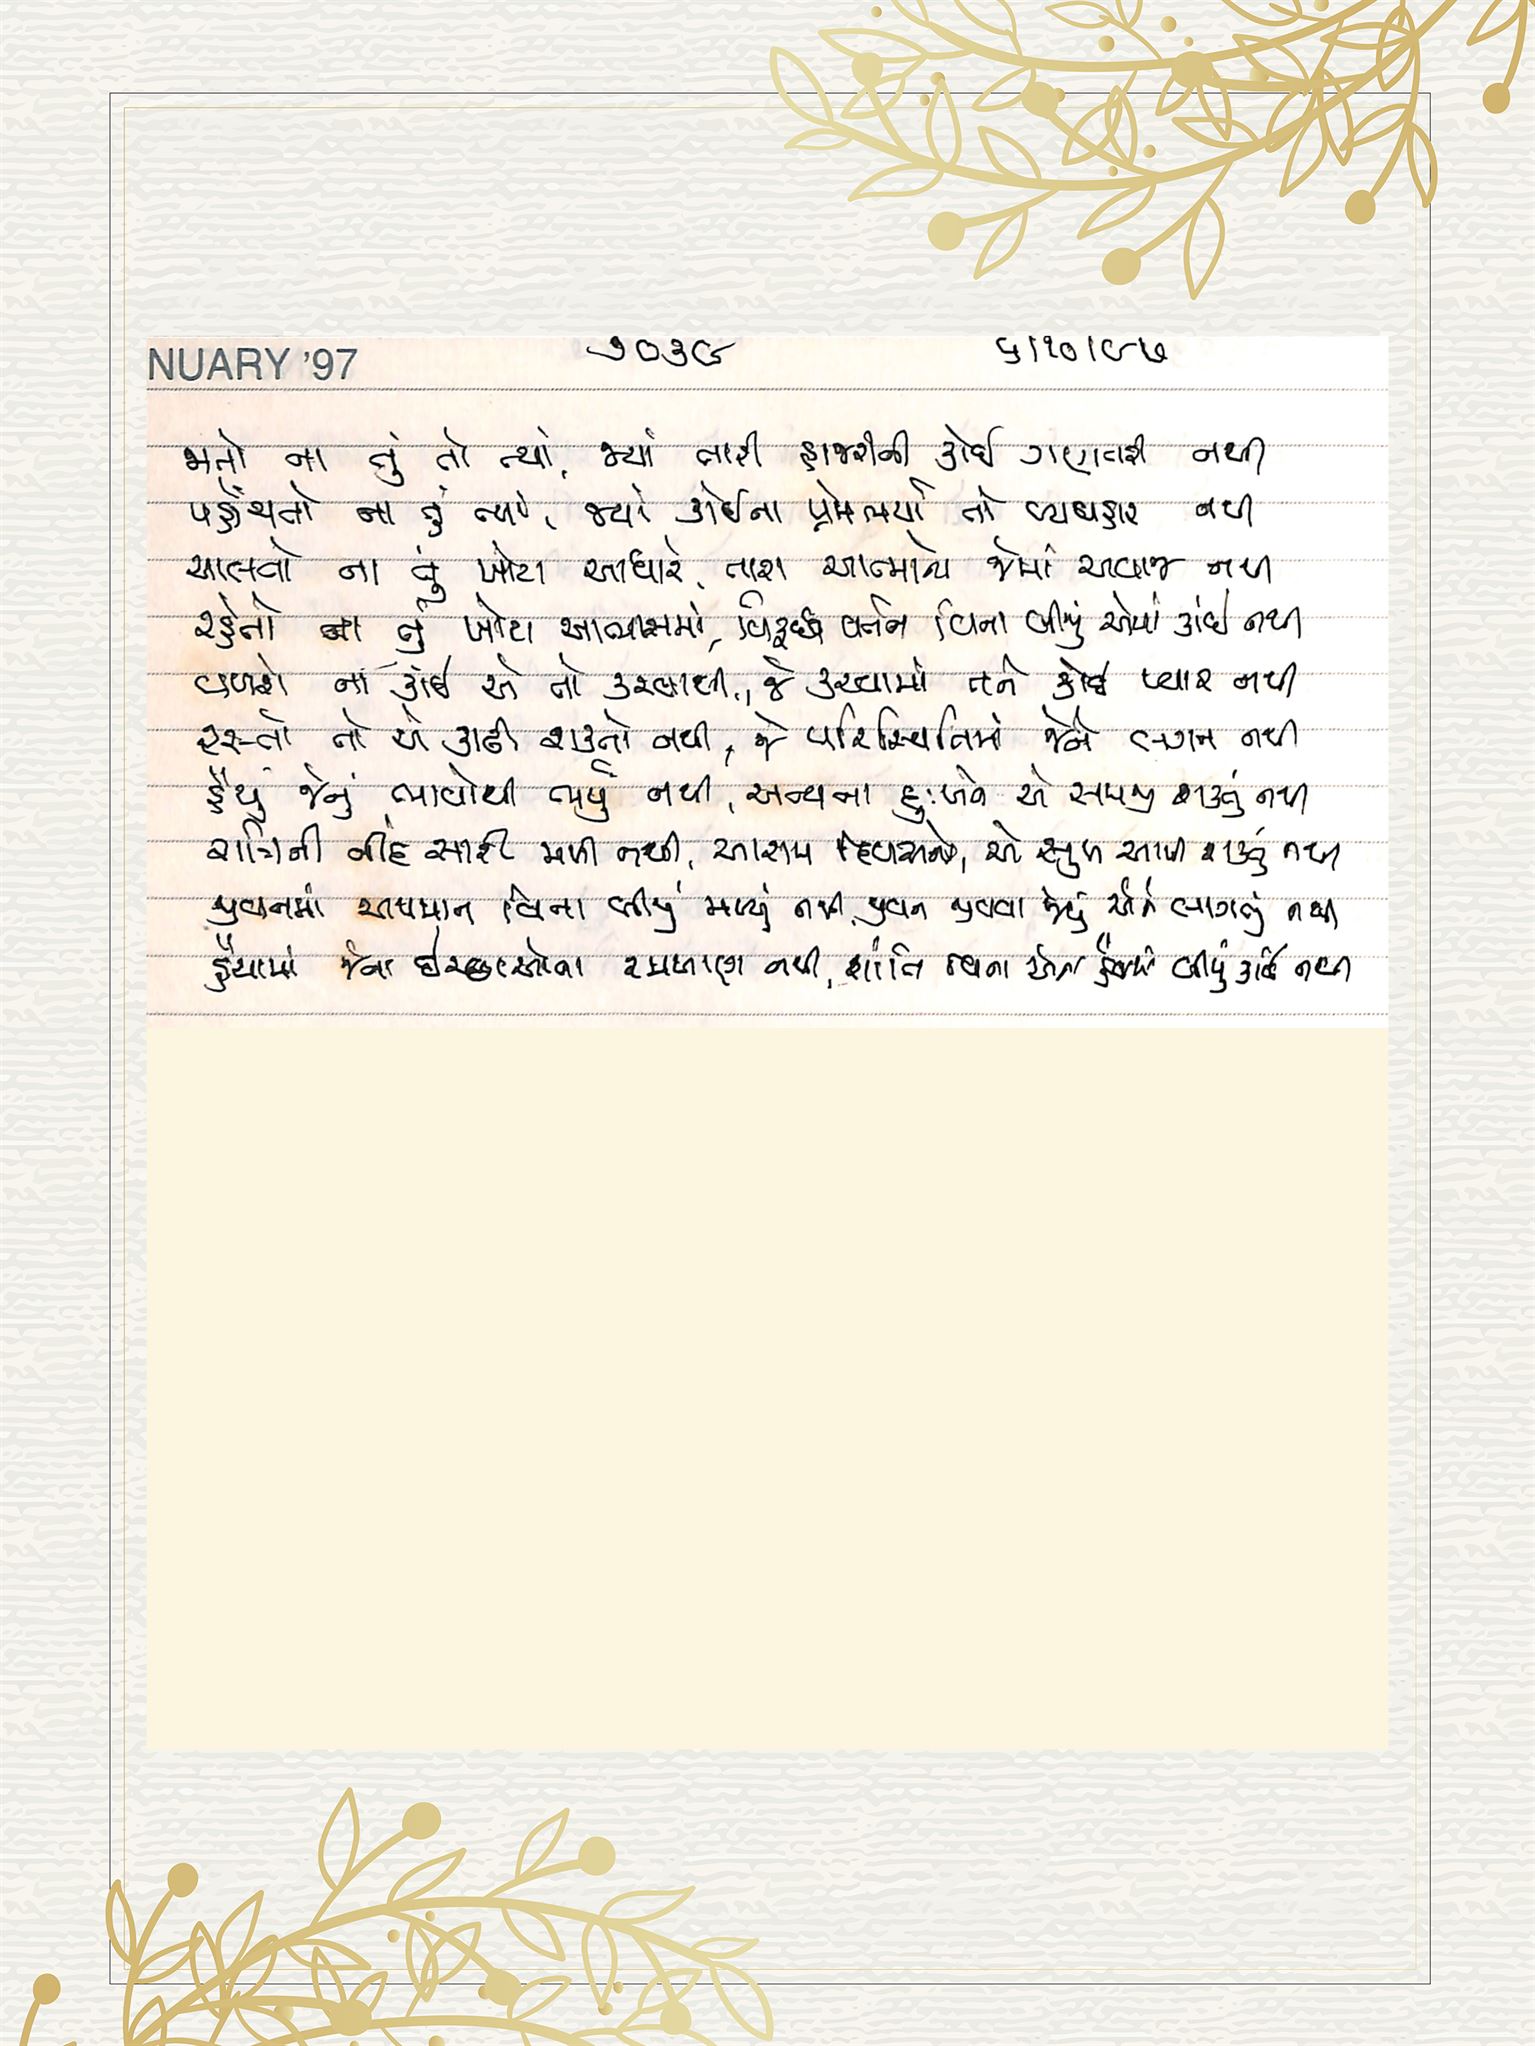 NUARY '97 ૭૦૩૯ ૬।૧૦।૯૭
જાતો ના તું તો ત્યાં, જ્યાં તારી હાજરીની કોઈ ગણતરી નથી
પહોંચતો ના તું ત્યાં, જ્યાં કોઈના પ્રેમભર્યા તો વ્યવહાર નથી
ચાલતો ના તું ખોટા આધારે, તારા આત્માનો જેમાં અવાજ નથી
રહેતો ના તું ખોટા આભાસમાં, વિરૂદ્ધ વર્તન વિના બીજું એમાં કાંઈ નથી
વળશે ના કાંઈ એ તો કરવાથી, જે કરવામાં તને કોઈ પ્યાર નથી
રસ્તો તો એ કાઢી શકતો નથી, જે પરિસ્થિતિમાં જેને જ્ઞાન નથી
હૈયું જેનું ભાવોથી ભર્યું નથી, અન્યના દુઃખને એ સમજી શકતું નથી
રાત્રિની નીંદ સારી મળી નથી, આરામ દિવસનો, એ સુખ આપી શકતું નથી
જીવનમાં અપમાન વિના બીજું મળ્યું નથી, જીવન જીવવા જેવું એને લાગતું નથી
હૈયામાં જેના ઈચ્છાઓના રમખાણ નથી, શાંતિ વિના એના હૈયામાં બીજું કાંઈ નથી